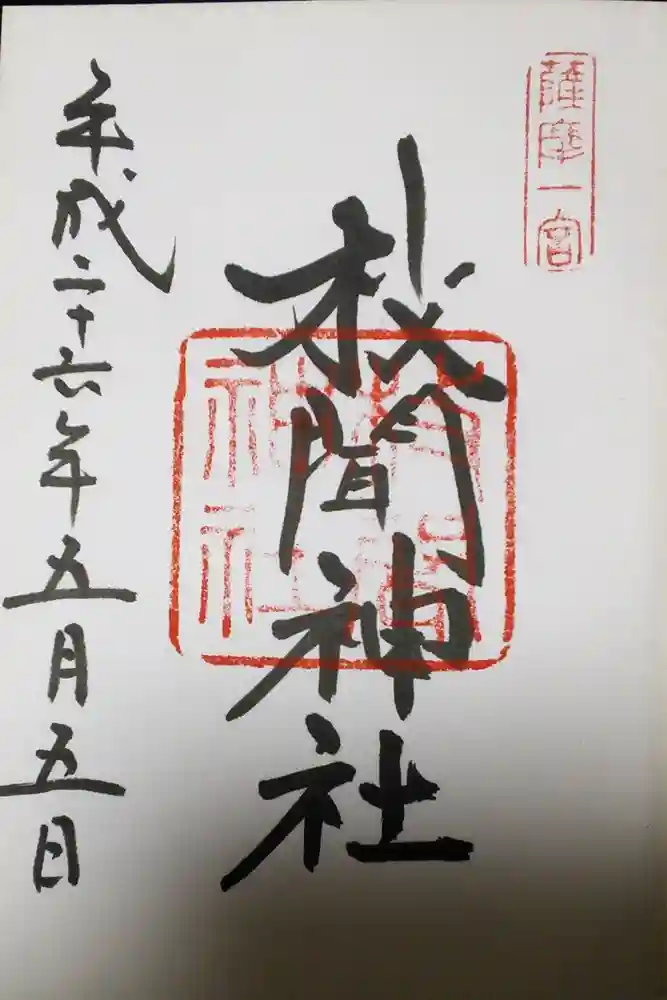 薩摩一宮
枚聞神社
枚聞神社
平成二十六年五月五日